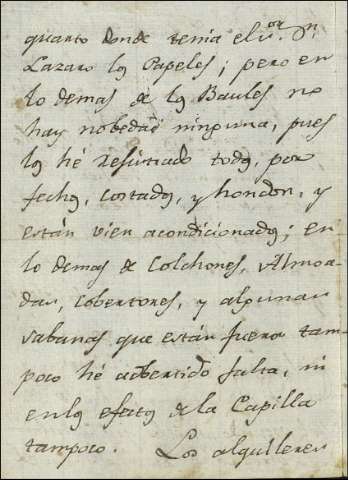 quarto donde tenia el Sr. Dn.
Lazaro los Papeles; pero en
lo demas de los Baules no
hay nobedad ninguna, pues
los hé rejistrado todos, por
fechos, costados, y hondon, y
están vien acondicionados; en
lo demas de Colchones, Almoa
das, cobertores, y algunas
sabanas que están fuera tam
poco hé adbertido falta, ni
en los efectos de la Capilla
tampoco. Los alquileres